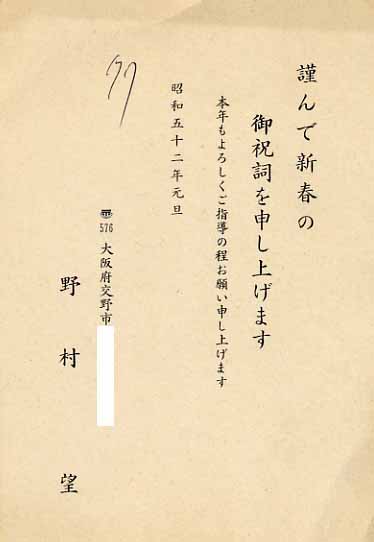 謹んで新春の
御祝詞を申し上げます
本年もよろしくご指導の程お願い申し上げます
昭和五十二年元旦
576 大阪府交野市
野村 望